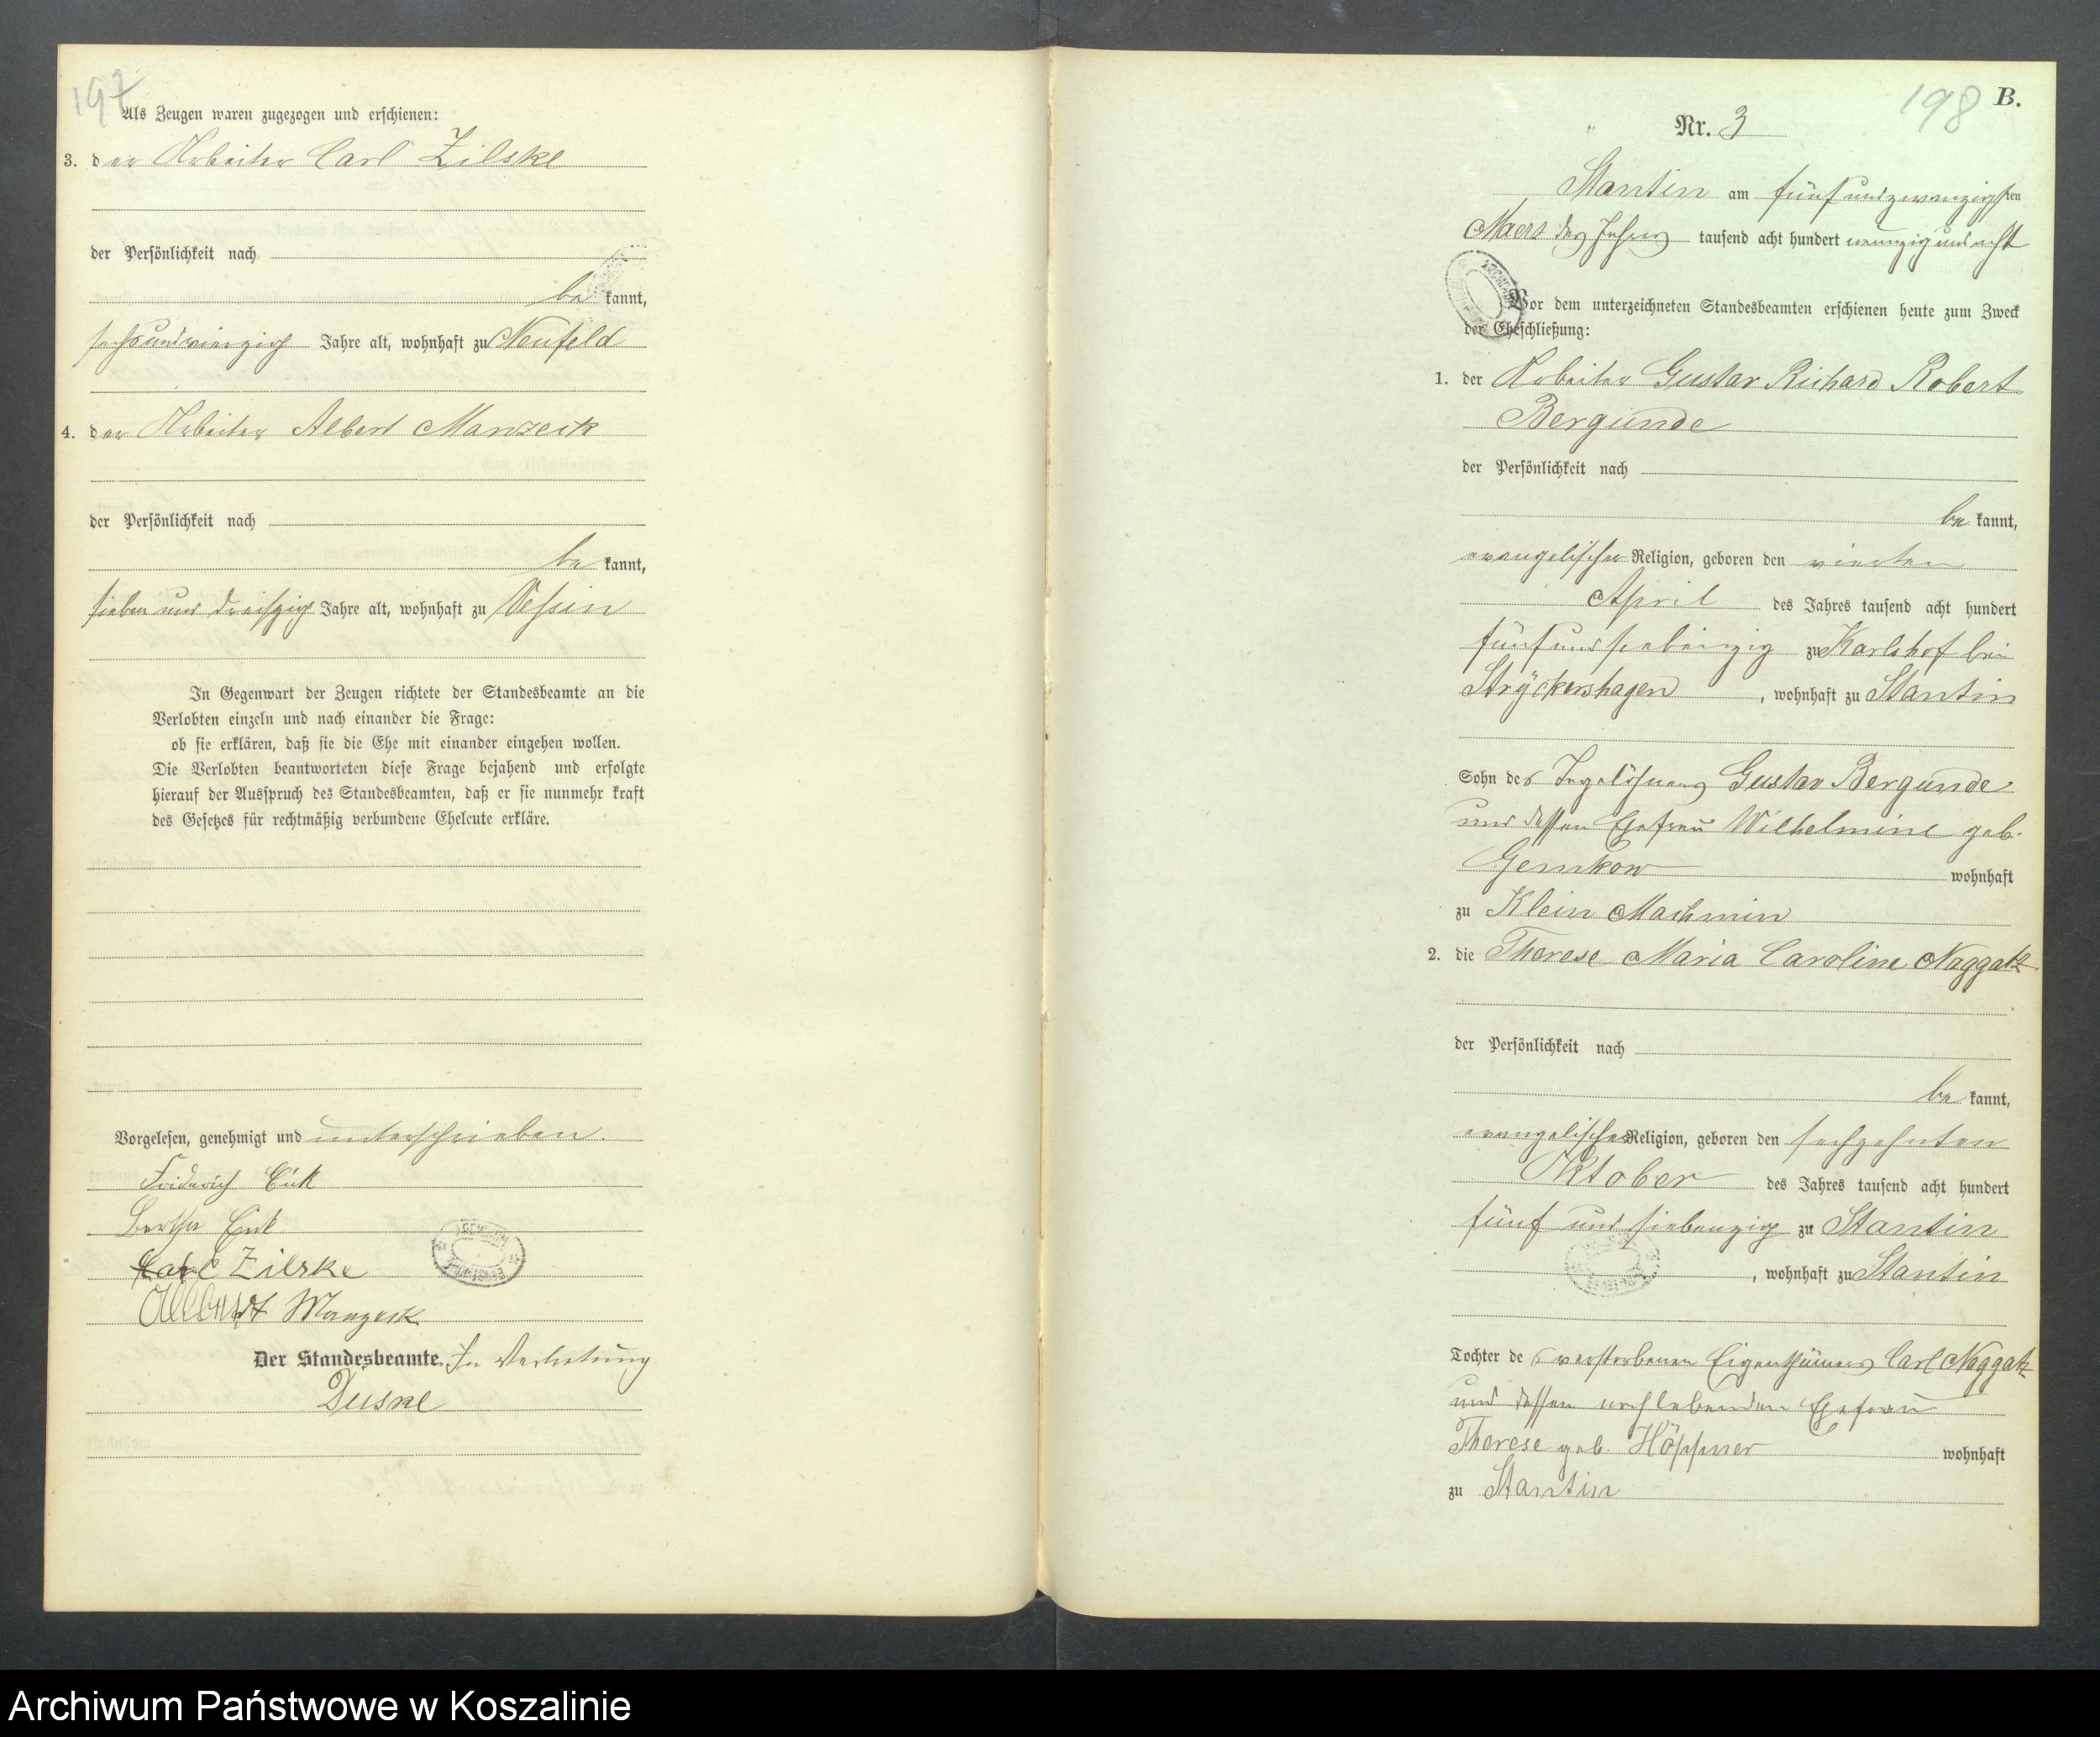 197
Als Zeugen waren zugezogen und erschienen:
3. der Arbeiter Carl Zilske
der Persönlichkeit nach
be kannt,
sechsundvierzig Jahre alt, wohnhaft zu Neufeld
4. der Arbeiter Albert Manzeck
der Persönlichkeit nach
be kannt,
sieben und dreißzig Jahre alt, wohnhaft zu Vessin
In Gegenwart der Zeugen richtete der Standesbeamte an die
Verlobten einzeln und nach einander die Frage:
ob sie erklären, daß sie die Ehe mit einander eingehen wollen.
Die Verlobten beantworteten diese Frage bejahend und erfolgte
hierauf der Ausspruch des Standesbeamten, daß er sie nunmehr kraft
des Gesetzes für rechtmäßig verbundene Eheleute erkläre.
Vorgelesen, genehmigt und unterschrieben.
Friderich
Bertha
Carl Zilske
Albert Manzeck
Der Standesbeamte. In Vertretung
Duske
198 B.
Nr. 3
Stantin am fünfundzwanzigsten
Maerz des Jahres tausend acht hundert neunzig und acht
Vor dem unterzeichneten Standesbeamten erschienen heute zum Zweck
der Eheschließung:
1. der Arbeiter Gustav Richard Robert
Bergunde
der Persönlichkeit nach
be kannt,
evangelischer Religion, geboren den vierten
April des Jahres tausend acht hundert
fünf und siebenzig zu Karlshof bei
Stryckershagen, wohnhaft zu Stantin
Sohn des Tagelöhners Gustav Bergunde
und dessen Ehefrau Wilhelmine geb.
Gemkow wohnhaft
zu Klein Machmin
2. die Therese Maria Caroline Naggatz
der Persönlichkeit nach
be kannt,
evangelischer Religion, geboren den sechzehnten
Oktober des Jahres tausend acht hundert
fünf und siebenzig zu Stantin
, wohnhaft zu Stantin
Tochter des verstorbenen Eigenthümers Carl Naggatz
und dessen noch lebenden Ehefrau
Therese geb. Höppner wohnhaft
zu Stantin
Archiwum Państwowe w Koszalinie